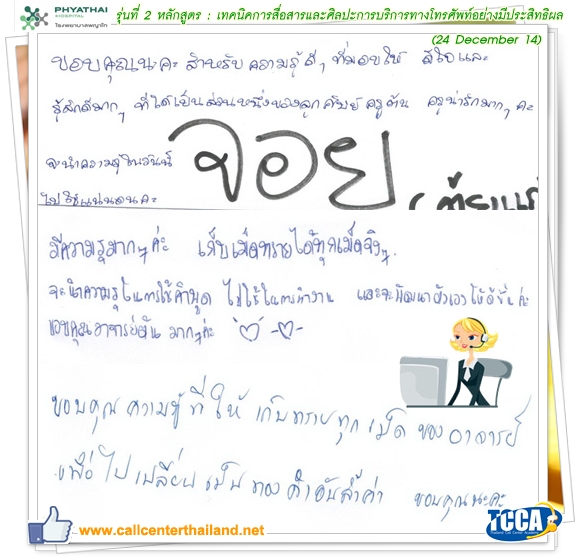 PHYATHAI
HOSPITAL
โรงพยาบาลพญาไท
รุ่นที่ 2 หลักสูตร : เทคนิคการสื่อสารและศิลปะการบริการทางโทรศัพท์อย่างมีประสิทธิผล
(24 December 14)
ขอบคุณนะคะ สำหรับความรู้ดีๆ ที่มอบให้ ดีใจและ
รู้สึกดีมากๆ ที่ได้เป็นส่วนหนึ่งของลูกศิษย์ ครูต้น ครูน่ารักมากๆ คะ
จะนำความรู้ในวันนี้
ไปใช้แน่นอนคะ
จอย
มีความรู้มากๆ ค่ะ เก็บเม็ดทรายได้ทุกเม็ดจริงๆ
จะนำความรู้ในการใช้คำพูด ไปใช้ในการทำงาน และจะพัฒนาตัวเองให้ดีขึ้นค่ะ
ขอบคุณอาจารย์ต้น มากๆค่ะ
ขอบคุณ ความรู้ ที่ให้ เก็บทรายทุกเม็ด ของอาจารย์
เพื่อไปเปลี่ยนเป็นทองคำอันล้ำค่า ขอบคุณนะคะ
www.callcenterthailand.net
TCCA
Thailand Call Center Academy